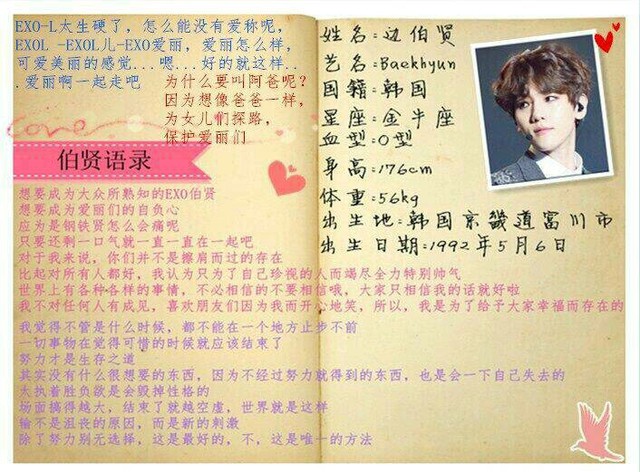 EXO-L太生硬了，怎么能没有爱称呢，
EXOL -EXOL儿-EXO爱丽，爱丽怎么样，
可爱美丽的感觉...嗯...好的就这样..
.爱丽啊一起走吧
为什么要叫阿爸呢?
因为想像爸爸一样，
为女儿们探路，
保护爱丽们
Love
伯贤语录
想要成为大众所熟知的EXO伯贤
想要成为爱丽们的自负心
应为是钢铁贤怎么会痛呢
只要还剩一口气就一直一直在一起吧
对于我来说，你们并不是擦肩而过的存在
比起对所有人都好，我认为只为了自己珍视的人而竭尽全力特别帅气
世界上有各种各样的事情，不必相信的不要相信哦，大家只相信我的话就好啦
我不对任何人有成见，喜欢朋友们因为我而开心地笑，所以，我是为了给予大家幸福而存在的
我觉得不管是什么时候，都不能在一个地方止步不前
一切事物在觉得可惜的时候就应该结束了
努力才是生存之道
其实没有什么很想要的东西，因为不经过努力就得到的东西，也是会一下自己失去的
太执着胜负欲是会毁掉性格的
场面搞得越大，结束了就越空虚，世界就是这样
输不是沮丧的原因，而是新的刺激
除了努力别无选择，这是最好的，不，这是唯一的方法
姓名:边伯贤
艺名:Baekhyun
国籍:韩国
星座:金牛座
血型:O型
身高:176cm
体重:56kg
出生地:韩国京畿道富川市
出生日期:1992年5月6日